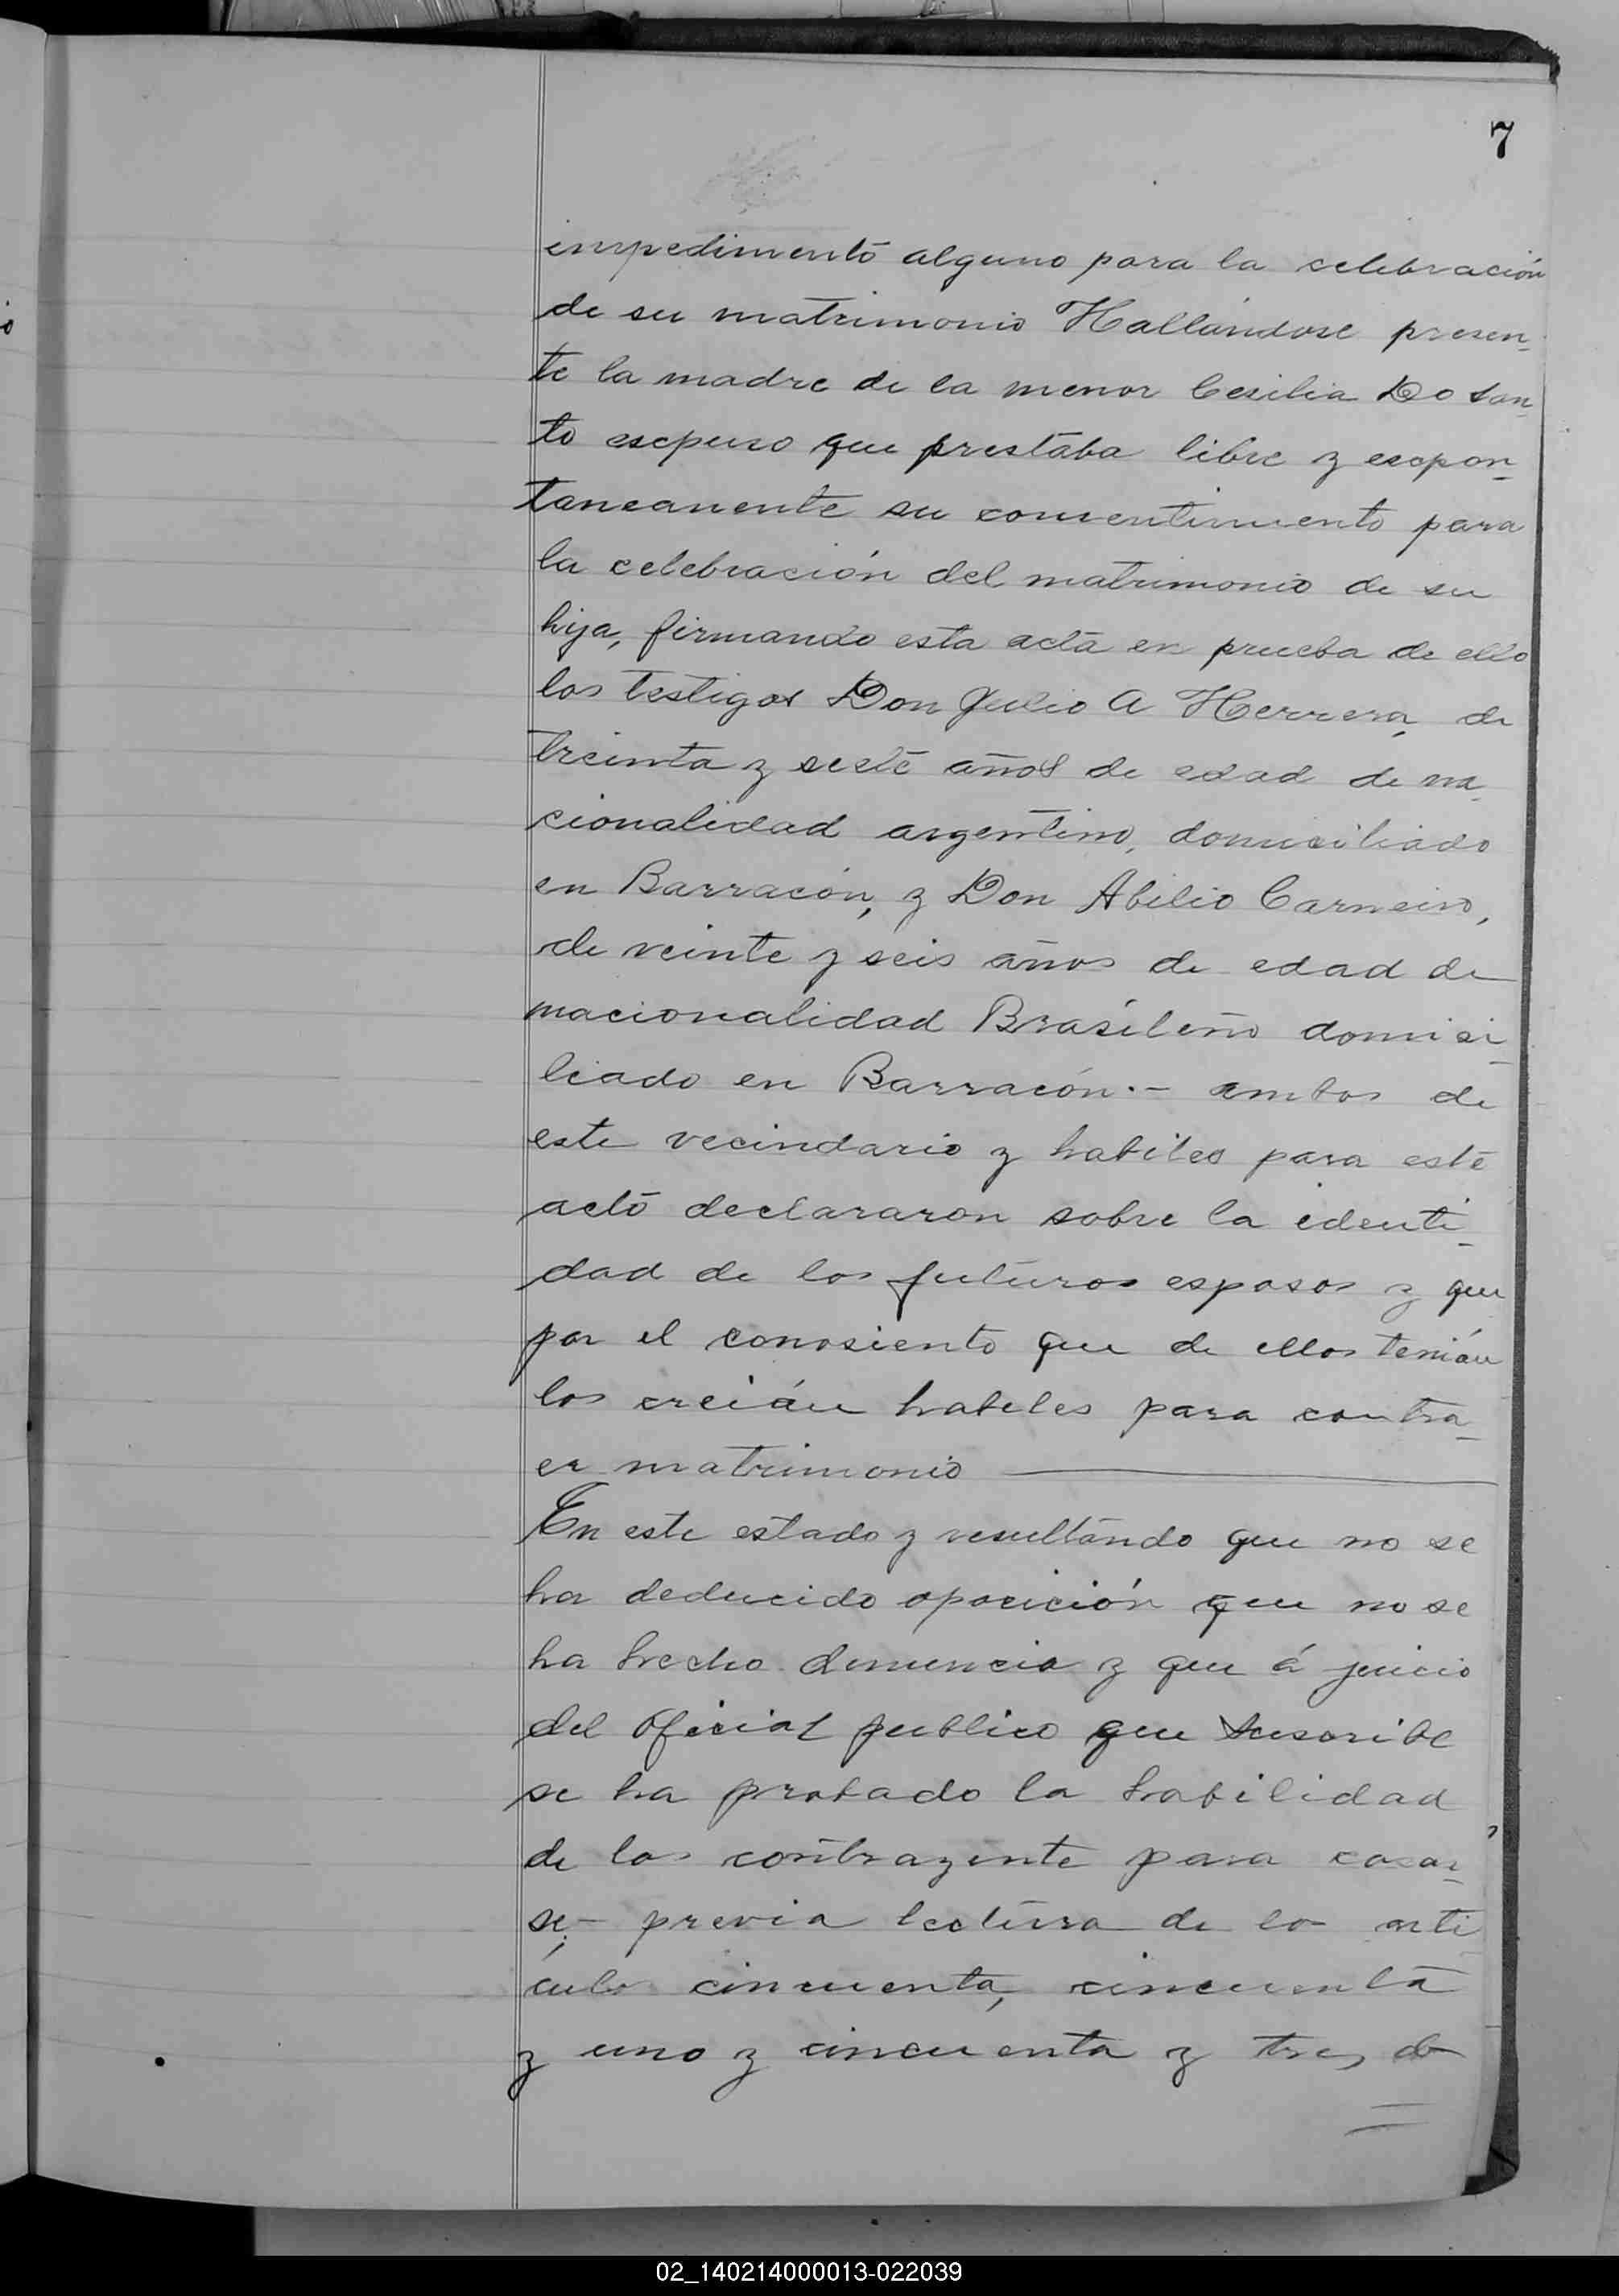 7
impedimento alguno para la celebración
de su matrimonio Hallándose presen-
te la madre de la menor Cecilia Do San-
to escpuso que prestaba libre y escpon-
taneamente su consentimiento para
la celebración del matrimonio de su
hija, firmando esta acta en prueba de ello
los testigos Don Julio A Herrera, de
treinta y siete años de edad de na-
cionalidad argentino, domiciliado
en Barracón, y Don Abilio Carneiro,
de veinte y seis años de edad de
nacionalidad Brasileño domici-
liado en Barracón.- ambos de
este vecindario y habiles para este
acto declararon sobre la identi-
dad de los futuros esposos y que
por el conosiento que de ellos tenián
los creián habeles para contra-
er matrimonio
En este estado y resultando que no se
ha deducido oposición que no se
ha hecho denuncia y que á juicio
del Oficial publico que suscribe
se ha probado la habilidad
de los contrayente para casar-
se;- previa lectura de lo arti
culo cincuenta, cincuenta
y uno y cincuenta y tres de
02_140214000013-022039